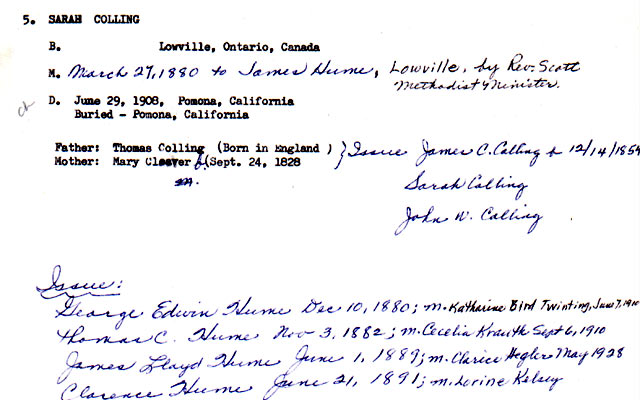 5. SARAH COLLING
B. Lowville, Ontario, Canada
M. March 27, 1880 to James Hume, Lowville, by Rev. Scott
Methodist Minister.
ch
D. June 29, 1908, Pomona, California
Buried - Pomona, California
Father: Thomas Colling (Born in England ) } Issue James C. Colling b 12/14/1859
Mother: Mary Cleaver b (Sept. 24, 1828
Sarah Colling
John W. Colling
Issue:
George Edwin Hume Dec 10, 1880; m. Katharine Bird Twinting, June 7, 1910
Thomas C. Hume Nov 3, 1882; m. Cecelia Krauth Sept 6, 1910
James Lloyd Hume June 1, 1889; m. Clarice Hegler May 1928
Clarence Hume June 21, 1891; m. Lorine Kelsey